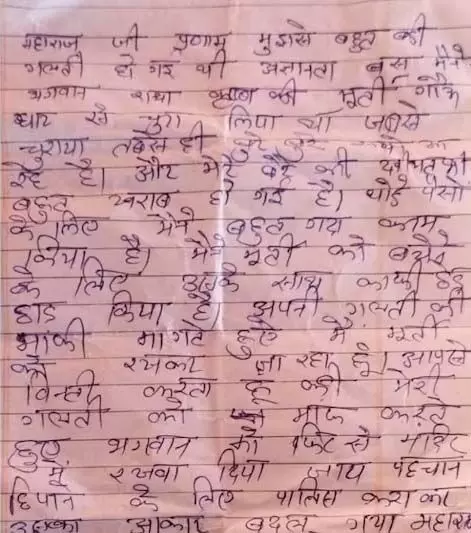 महाराज जी प्रणाम मुझसे बहुत बडी
गलती हो गई थी अज्ञानता बस मैने
भगवान राधा कृष्ण की मूर्ती गौके
घाट से चुरा लिया था जबसे
चुराया तबसे ही बुरे बुरे
रहे है। और मेरे बेटे की
बहुत खराब हो गई है। थोडे पैसो
के लिए मैने बहुत गंदा काम
किया है। मैने मूर्ती को बेचने
के लिए उसके साथ काफी छेड
छाड किया है। अपनी गलती की
माफी मागते हुए मै मूर्ती
को रखकर जा रहा हूं। आपसे
विन्ती करता हू की मेरी
गलती को माफ करते
हुए भगवान को फिर से मंदिर
में रखवा दिया जाय पहचान
छिपाने के लिए पालिस करा कर
उसका आकार बदल गया महाराज